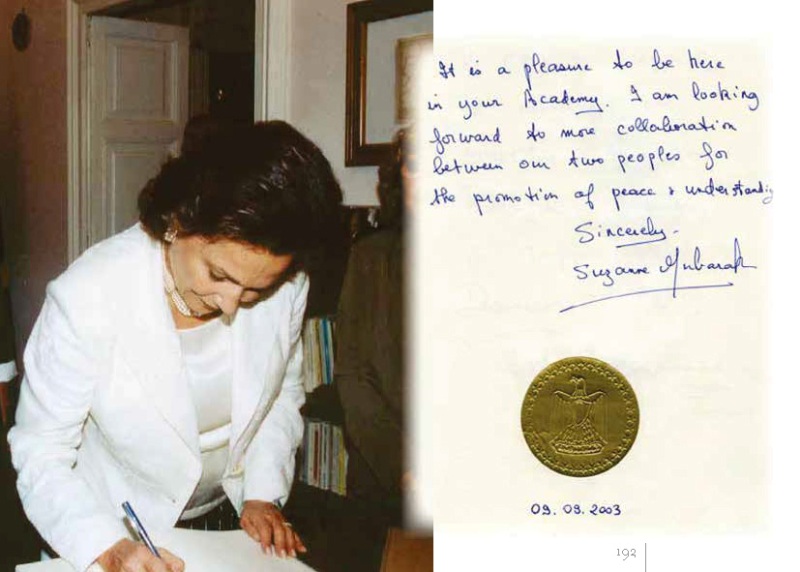 It is a pleasure to be here
in your Academy. I am looking
forward to more collaboration
between our two peoples for
the promotion of peace & understanding
Sincerely.
Suzanne Mubarak
09. 09. 2003
192